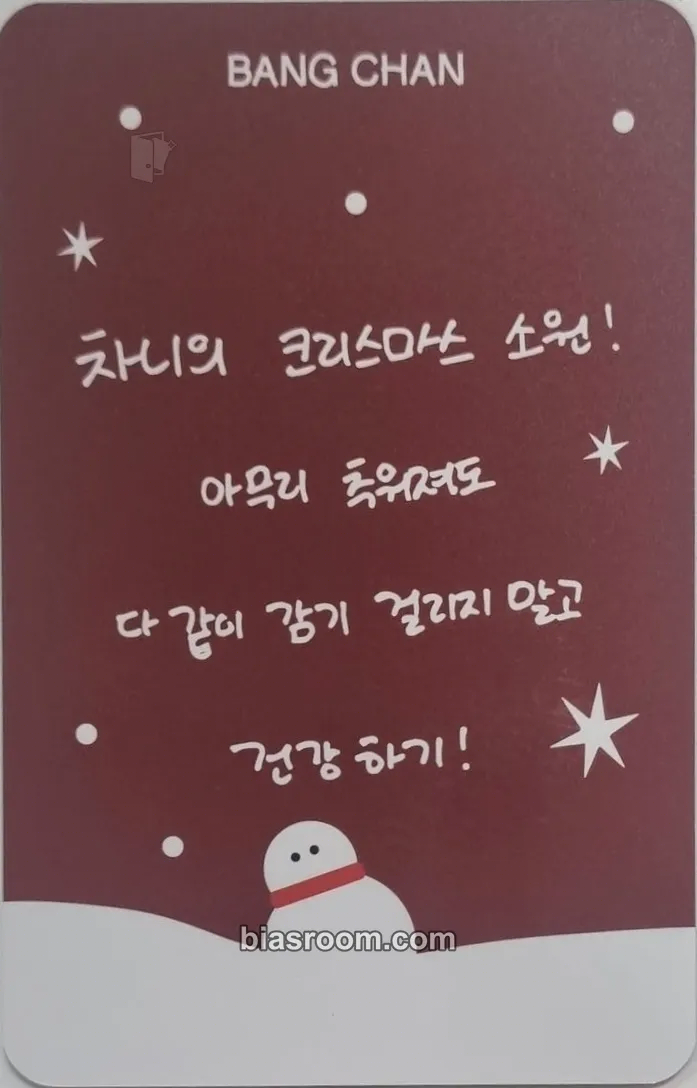 BANG CHAN
차니의 크리스마스 소원!
아무리 추워져도
다 같이 감기 걸리지 말고
건강하기!
biasroom.com